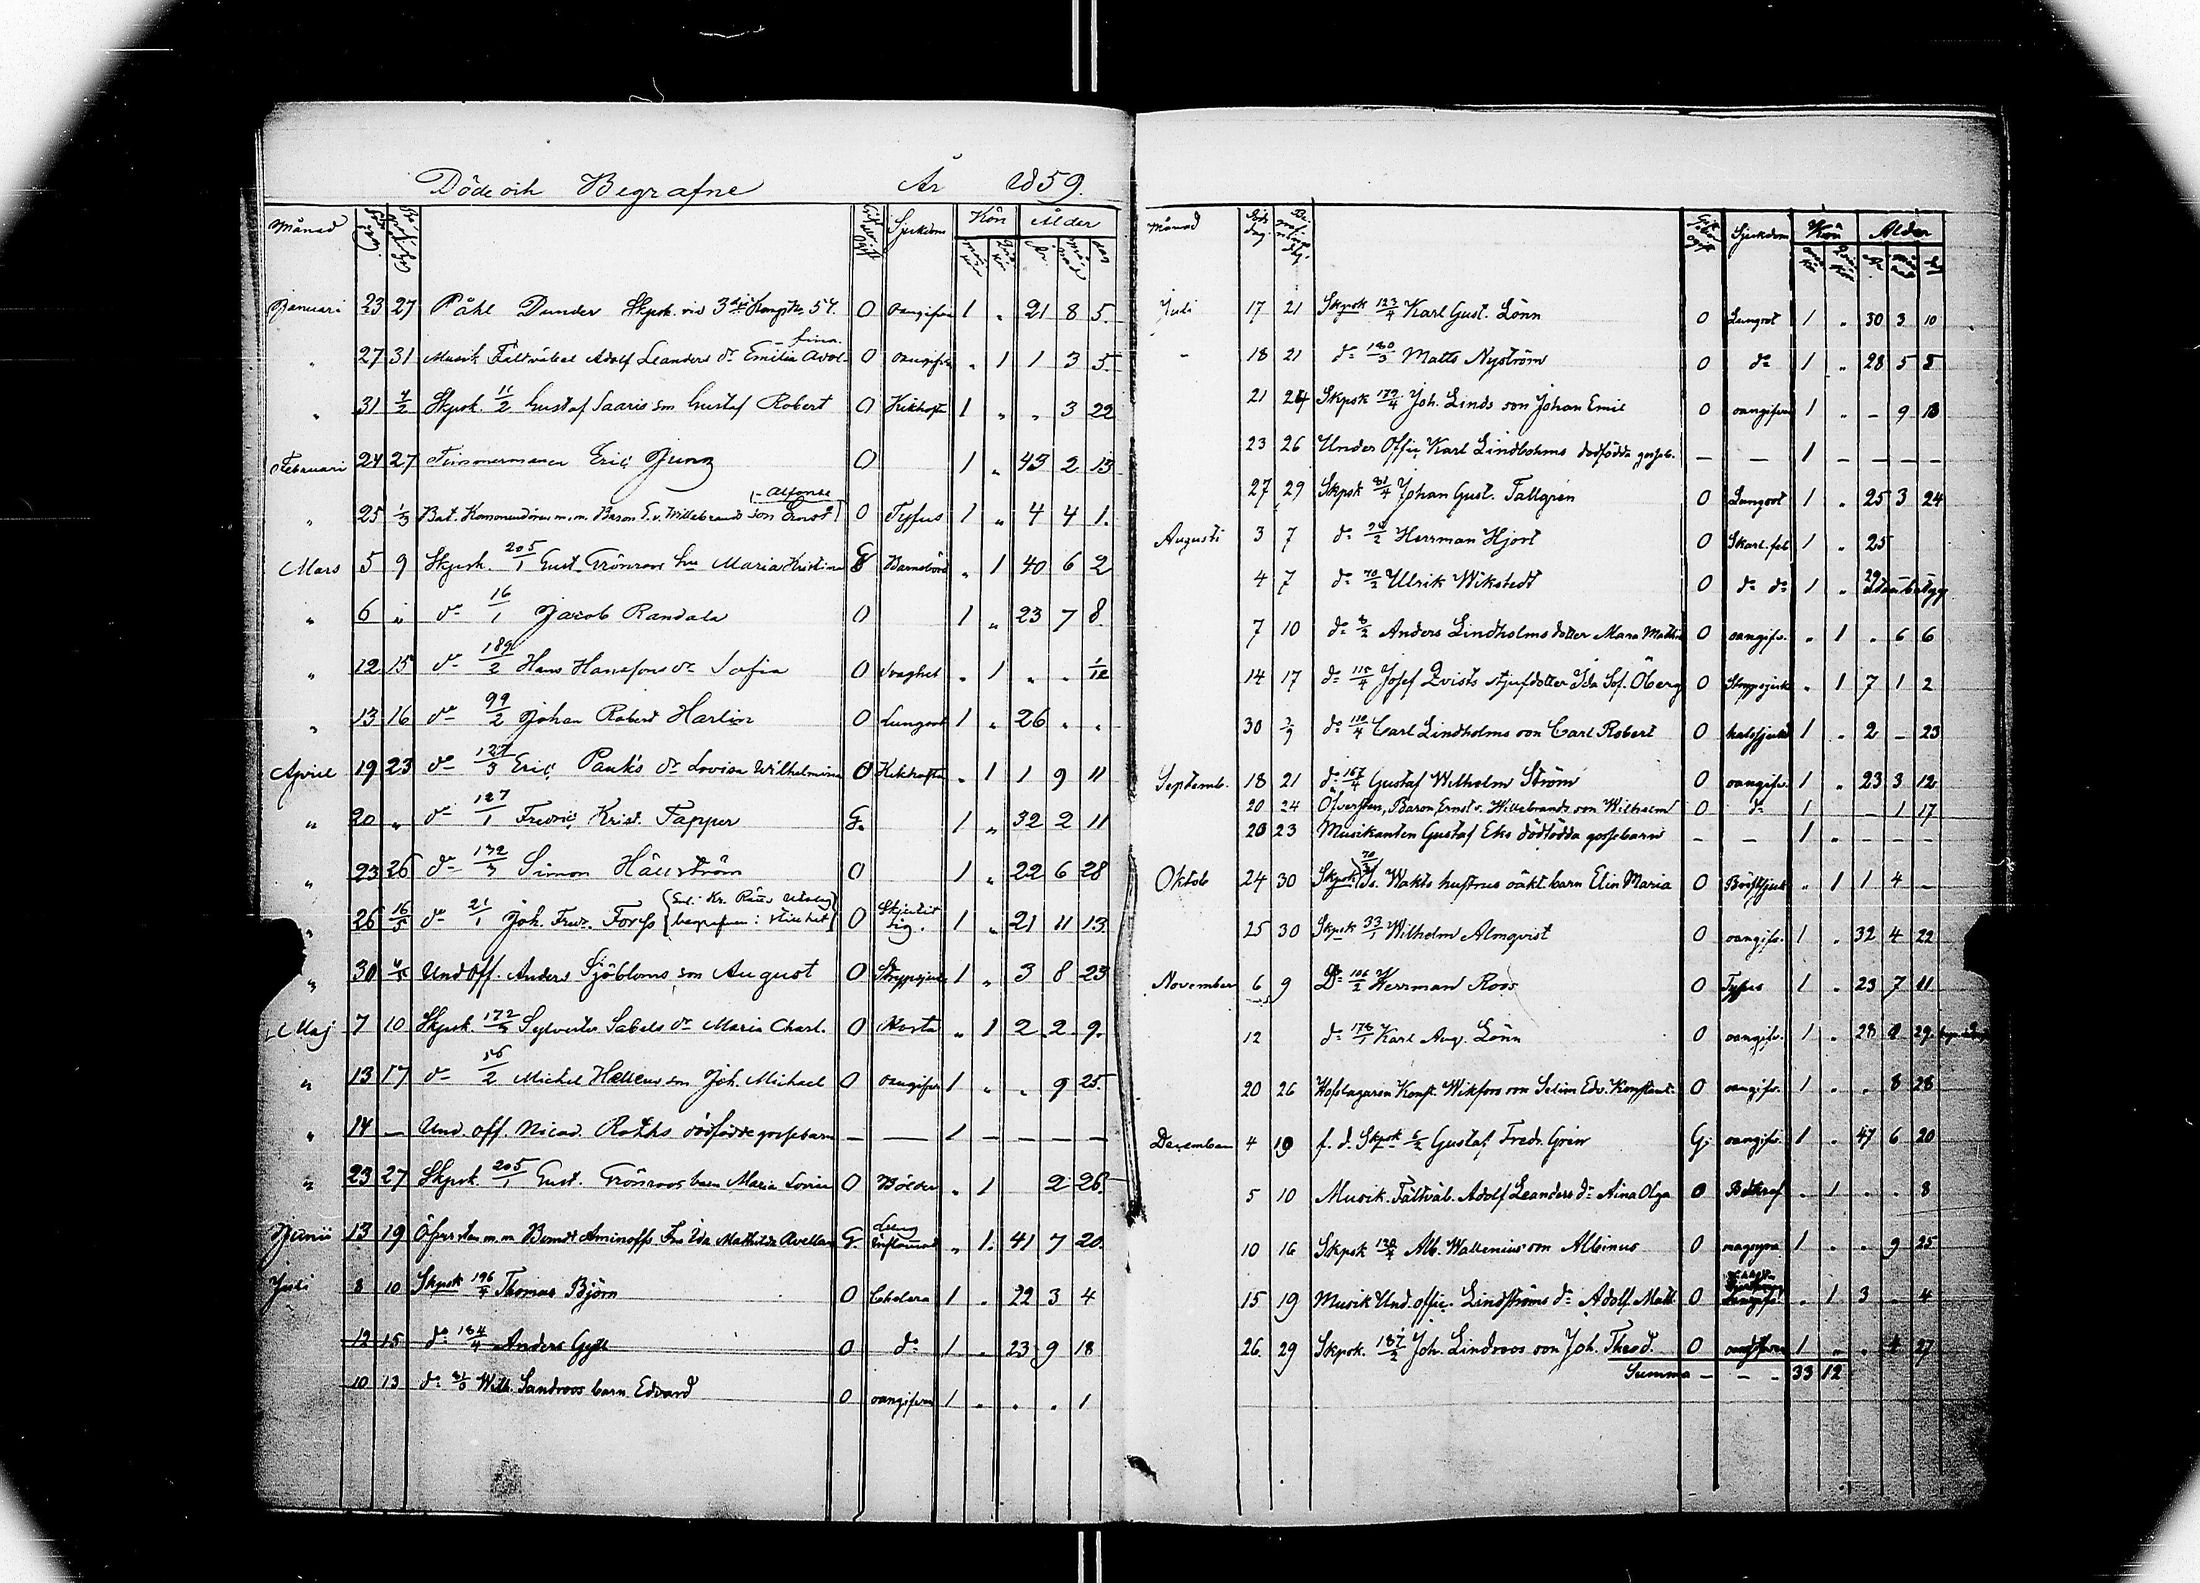 Döde och Begrafne År 1859.
Månad Kön Ålder
Sjukdom
Januari 23 27 Påhl Dunder Skpsk. vid 3dje Komp. No 54. O oangifven 1 „ 21 8 5.
- fina.
„ 27 31 Musik Fältväbel Adolf Leanders do Emilia Avol- O oangifven „ 1 1 3 5.
„ 31 4/2 Skpsk. 11/2 Gustaf Saaris son Gustaf Robert O Kikhosta 1 „ „ 3 22
Februari 24 27 Timmermannen Eric Jung O 1 „ 43 2 13
- Alfonse
„ 25 1/3 Bat. Kommendören m.m. Baron E. v. Willebrands son Ernst O Tyfus 1 „ 4 4 1.
Mars 5 9 Skpsk. 205/1 Gust. Grönroos hu Maria Kristina G Barnsbörd „ 1 40 6 2
„ 6 „ do 16/1 Jacob Randala O 1 „ 23 7 8
„ 12 15 do 189/2 Hans Hanssons do Sofia O Svaghet „ 1 „ „ 1/12
„ 13 16 do 99/2 Johan Robert Harlin O Lungsot 1 „ 26 „ „
April 19 23 do 127/3 Eric Pauk's do Lovisa Wilhelmina O Kikhosta „ 1 1 9 11
„ 20 „ do 127/1 Fredric Krist. Tapper G. 1 „ 32 2 11
„ 23 26 do 132/3 Simon Hällström O 1 „ 22 6 28
„ 26 16/5 do 21/1 Joh. Fredr. Forss O 1 „ 21 11 13
„ 30 4/5 Und Off. Anders Sjöbloms son August O Strypsjuka 1 „ 3 8 23
Maj 7 10 Skpsk. 172/3 Sylvester Sabels do Maria Charl. O Hosta „ 1 2 2 9.
„ 13 17 do 56/2 Michel Hellens son Joh. Michael O oangifven 1 „ „ 9 25
„ 14 — Und. off. Nicod. Roths dödfödde gossebarn — — 1 — — — —
„ 23 27 Skpsk. 205/1 Gust. Grönroos barn Maria Lovisa O Bölder „ 1 2 26.
Lung
Junii 13 19 Öfversten m.m Berndt Aminoffs Fru Ida Mathilda Avellan G. inflammat „ 1. 41 7 20.
Juli 8 10 Skpsk 196/4 Thomas Björn O Cholera 1 „ 22 3 4
12 15 do 184/4 Anders Gyll O do 1 „ 23 9 18
10 13 do Wilh. Sandroos barn Edvard O oangifven 1 „ „ „ 1
Månad Sjukdom Kön Ålder
Juli 17 21 Skpsk 123/4 Karl Gust. Lönn O Lungsot 1 „ 30 3 10
„ 18 21 do 180/3 Matts Nyström O do 1 „ 28 5 5
21 24 Skpsk 179/4 Joh. Linds son Johan Emil O oangifven 1 „ - 9 13
23 26 Under Offic Karl Lindbohms dödfödda gosseb. — — 1 — — — —
27 29 Skpsk 81/4 Johan Gust. Tallgren O Lungsot 1 „ 25 3 24
Augusti 3 7 do Herrman Hjort O Skarl. feb 1 „ 25
4 7 do 70/2 Ulrik Wikstedt O do do 1 „ 29
7 10 do Anders Lindholms dotter Mara Mathil O oangifv. „ 1 „ 6 6
14 17 do 115/4 Josef Qvists styfdotter Ida Sof. Öberg O Strypsjuka „ 1 7 1 2
30 2/9 do 110/4 Carl Lindholms son Carl Robert O halssjukd 1 „ 2 - 23
Septemb. 18 21 do 167/4 Gustaf Wilhelm Ström O oangifv. 1 „ 23 3 12
20 24 Öfversten, Baron Ernst v. Willebrands son Wilhelm O do 1 - 1 17
20 23 Musikanten Gustaf Eks dödfödda gossebarn - - 1 „ - -
Oktob 24 30 Skpsk Js. Wakts hustrus oäkt. barn Elin Maria O Bröstsjuk „ 1 1 4 -
25 30 Skpsk 33/1 Wilhelm Almqvist O oangifv. 1 „ 32 4 22
November 6 9 Do 106/2 Herrman Roos O Tyfus 1 „ 23 7 11
12 do 178/1 Karl Aug. Lönn O oangifv. 1 „ 28 29
20 26 Hofslagaren Konst. Wikfors son Selim Edv. Konstant. O oangifv. 1 „ „ 8 28
December 4 19 f. d. Skpsk 6/2 Gustaf Fredr. Grön G. oangifv. 1 „ 47 6 20
5 10 Musik. Fältväb. Adolf Leanders do Aina Olga O „ 1 „ „ 8
10 16 Skpsk Alb. Wallenius son Albinus O 1 „ „ 9 25
15 19 Musik Und. offic. Lindströms do Adolf. Math. O „ 1 3 „ 4
26. 29 Skpsk. 187/2 Joh. Lindroos son Joh. Theod. O oangifven 1 „ „ 4 27
Summa — - - 33 12